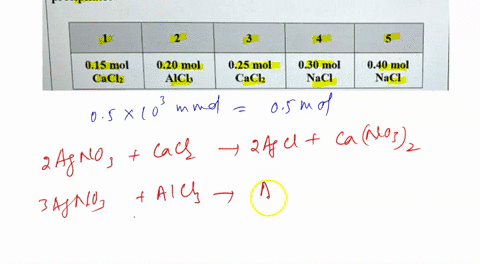 1 2 3 4 5
0.15 mol CaCl₂ 0.20 mol AlCl₃ 0.25 mol CaCl₂ 0.30 mol NaCl 0.40 mol NaCl
0.5 × 10³ mmol = 0.5 mol
2AgNO₃ + CaCl₂ → 2AgCl + Ca(NO₃)₂
3AgNO₃ + AlCl₃ → A